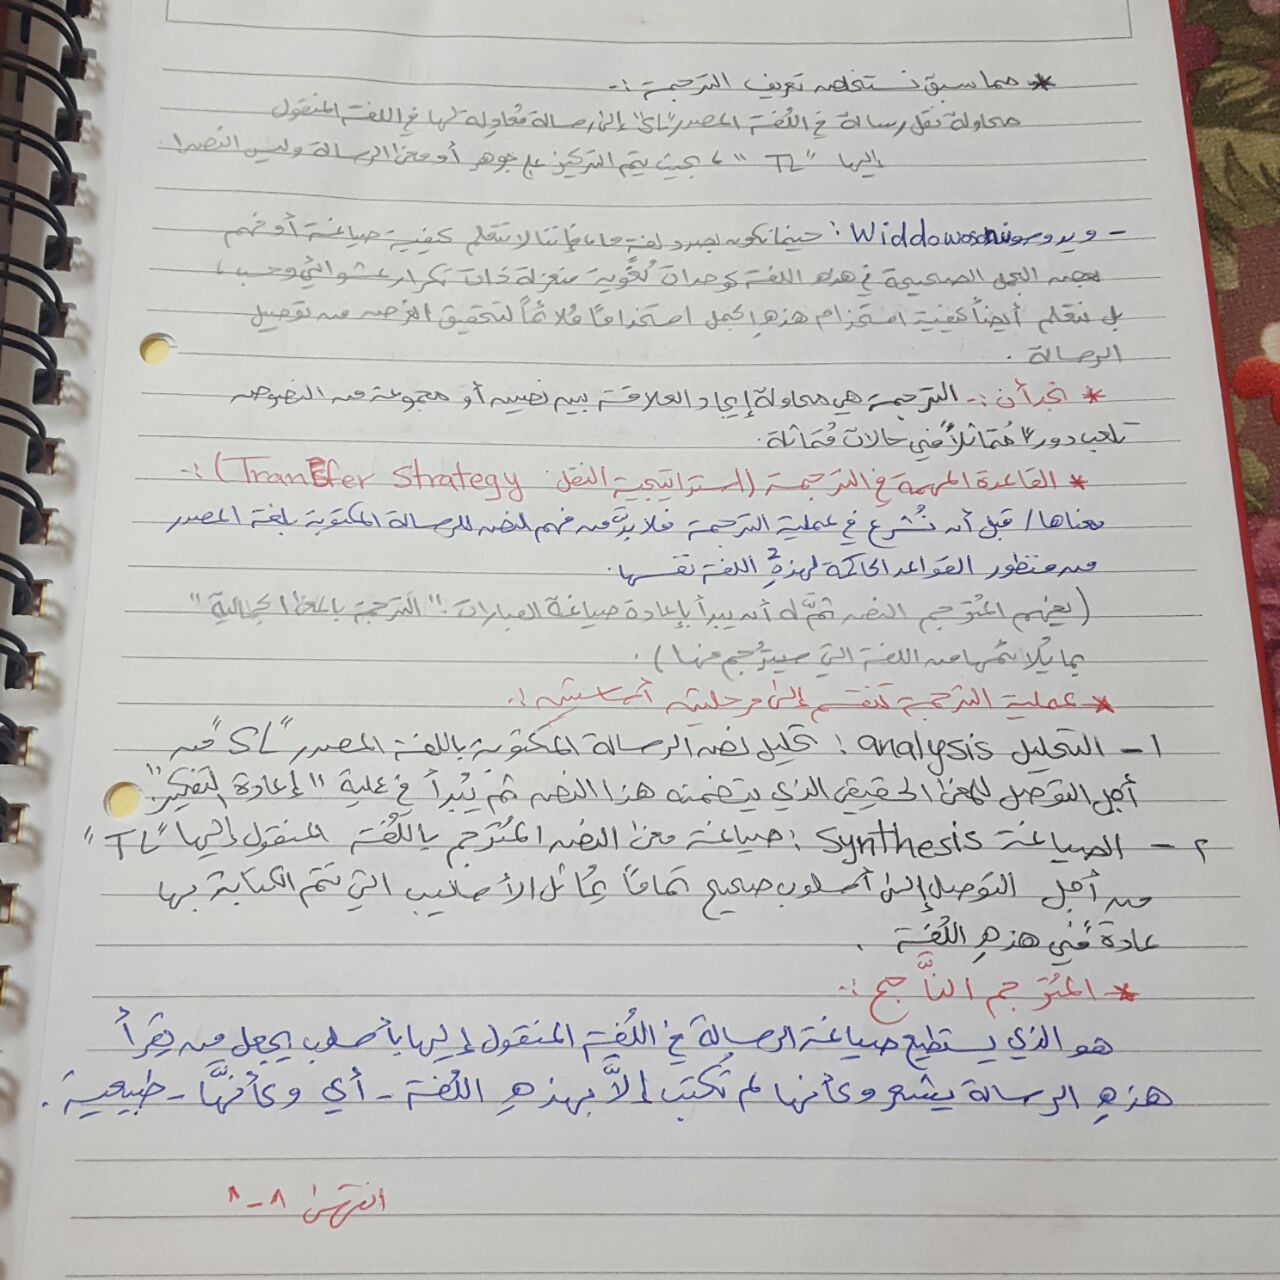 * مما سبق نستخلص تعريف الترجمة :-
محاولة نقل رسالة في اللُّغة المصدر "SL" إلى رسالة مُعادِلة لها في اللغة المنقول
إليها "TL" ، بحيث يتم التركيز على جوهر أو معنى الرسالة وليس النص.
- ويدوسون Widdowson : حينما نكون بصدد لغة ما فإننا لا نتعلم كيفية صياغة أو فهم
بعض الجمل الصحيحة في هذه اللغة كوحدات لُغوية منعزلة ذات تكرار عشوائي وحسب ،
بل نتعلم أيضاً كيفية استخدام هذهِ الجمل استخداماً مُلائماً لتحقيق الغرض من توصيل
الرسالة .
* نجد أن :- الترجمة هي محاولة إيجاد العلاقة بين نصين أو مجموعة من النصوص
تلعب دوراً مُماثلاً في حالات مُماثلة.
* القاعدة المهمة في الترجمة (استراتيجية النقل Transfer Strategy) :-
معناها / قبل أن نُشرع في عملية الترجمة فلا بُدَّ من فهم لنص للرسالة المكتوبة بلغة المصدر
من منظور القواعد الحاكمة لهذهِ اللغة نفسها.
(يفهم المُترجم النص ثمَّ لهُ أن يبدأ بإعادة صياغة العبارات "الترجمة بالمعنى الجمالية"
بما يُلائمها من اللغة التي سيُترجم منها) .
* عملية الترجمة تنقسم إلى مرحلتين أساسيتين :.
١ - التحليل analysis : تحليل نص الرسالة المكتوبة باللغة المصدر "SL" من
أجل التوصل للمعنى الحقيقي الذي يتضمنه هذا النص ثم يُبدأ في عملية "إعادة التفكير"
٢ - الصياغة Synthesis : صياغة معنى النص المُترجم باللُّغة المنقول إليها "TL"
من أجل التوصل إلى أسلوب صحيح تماماً يُماثل الأساليب التي تتم الكتابة بها
عادةً في هذهِ اللُّغة .
* المُترجم النَّاجح :-
هو الذي يستطيع صياغة الرسالة في اللُّغة المنقول إليها بأسلوب يجعل من يقرأ
هذهِ الرسالة يشعر وكأنها لم تُكتب إلَّا بهذهِ اللُّغة - أي وكأنَّها - طبيعية .
انتهى ٨ - ٨